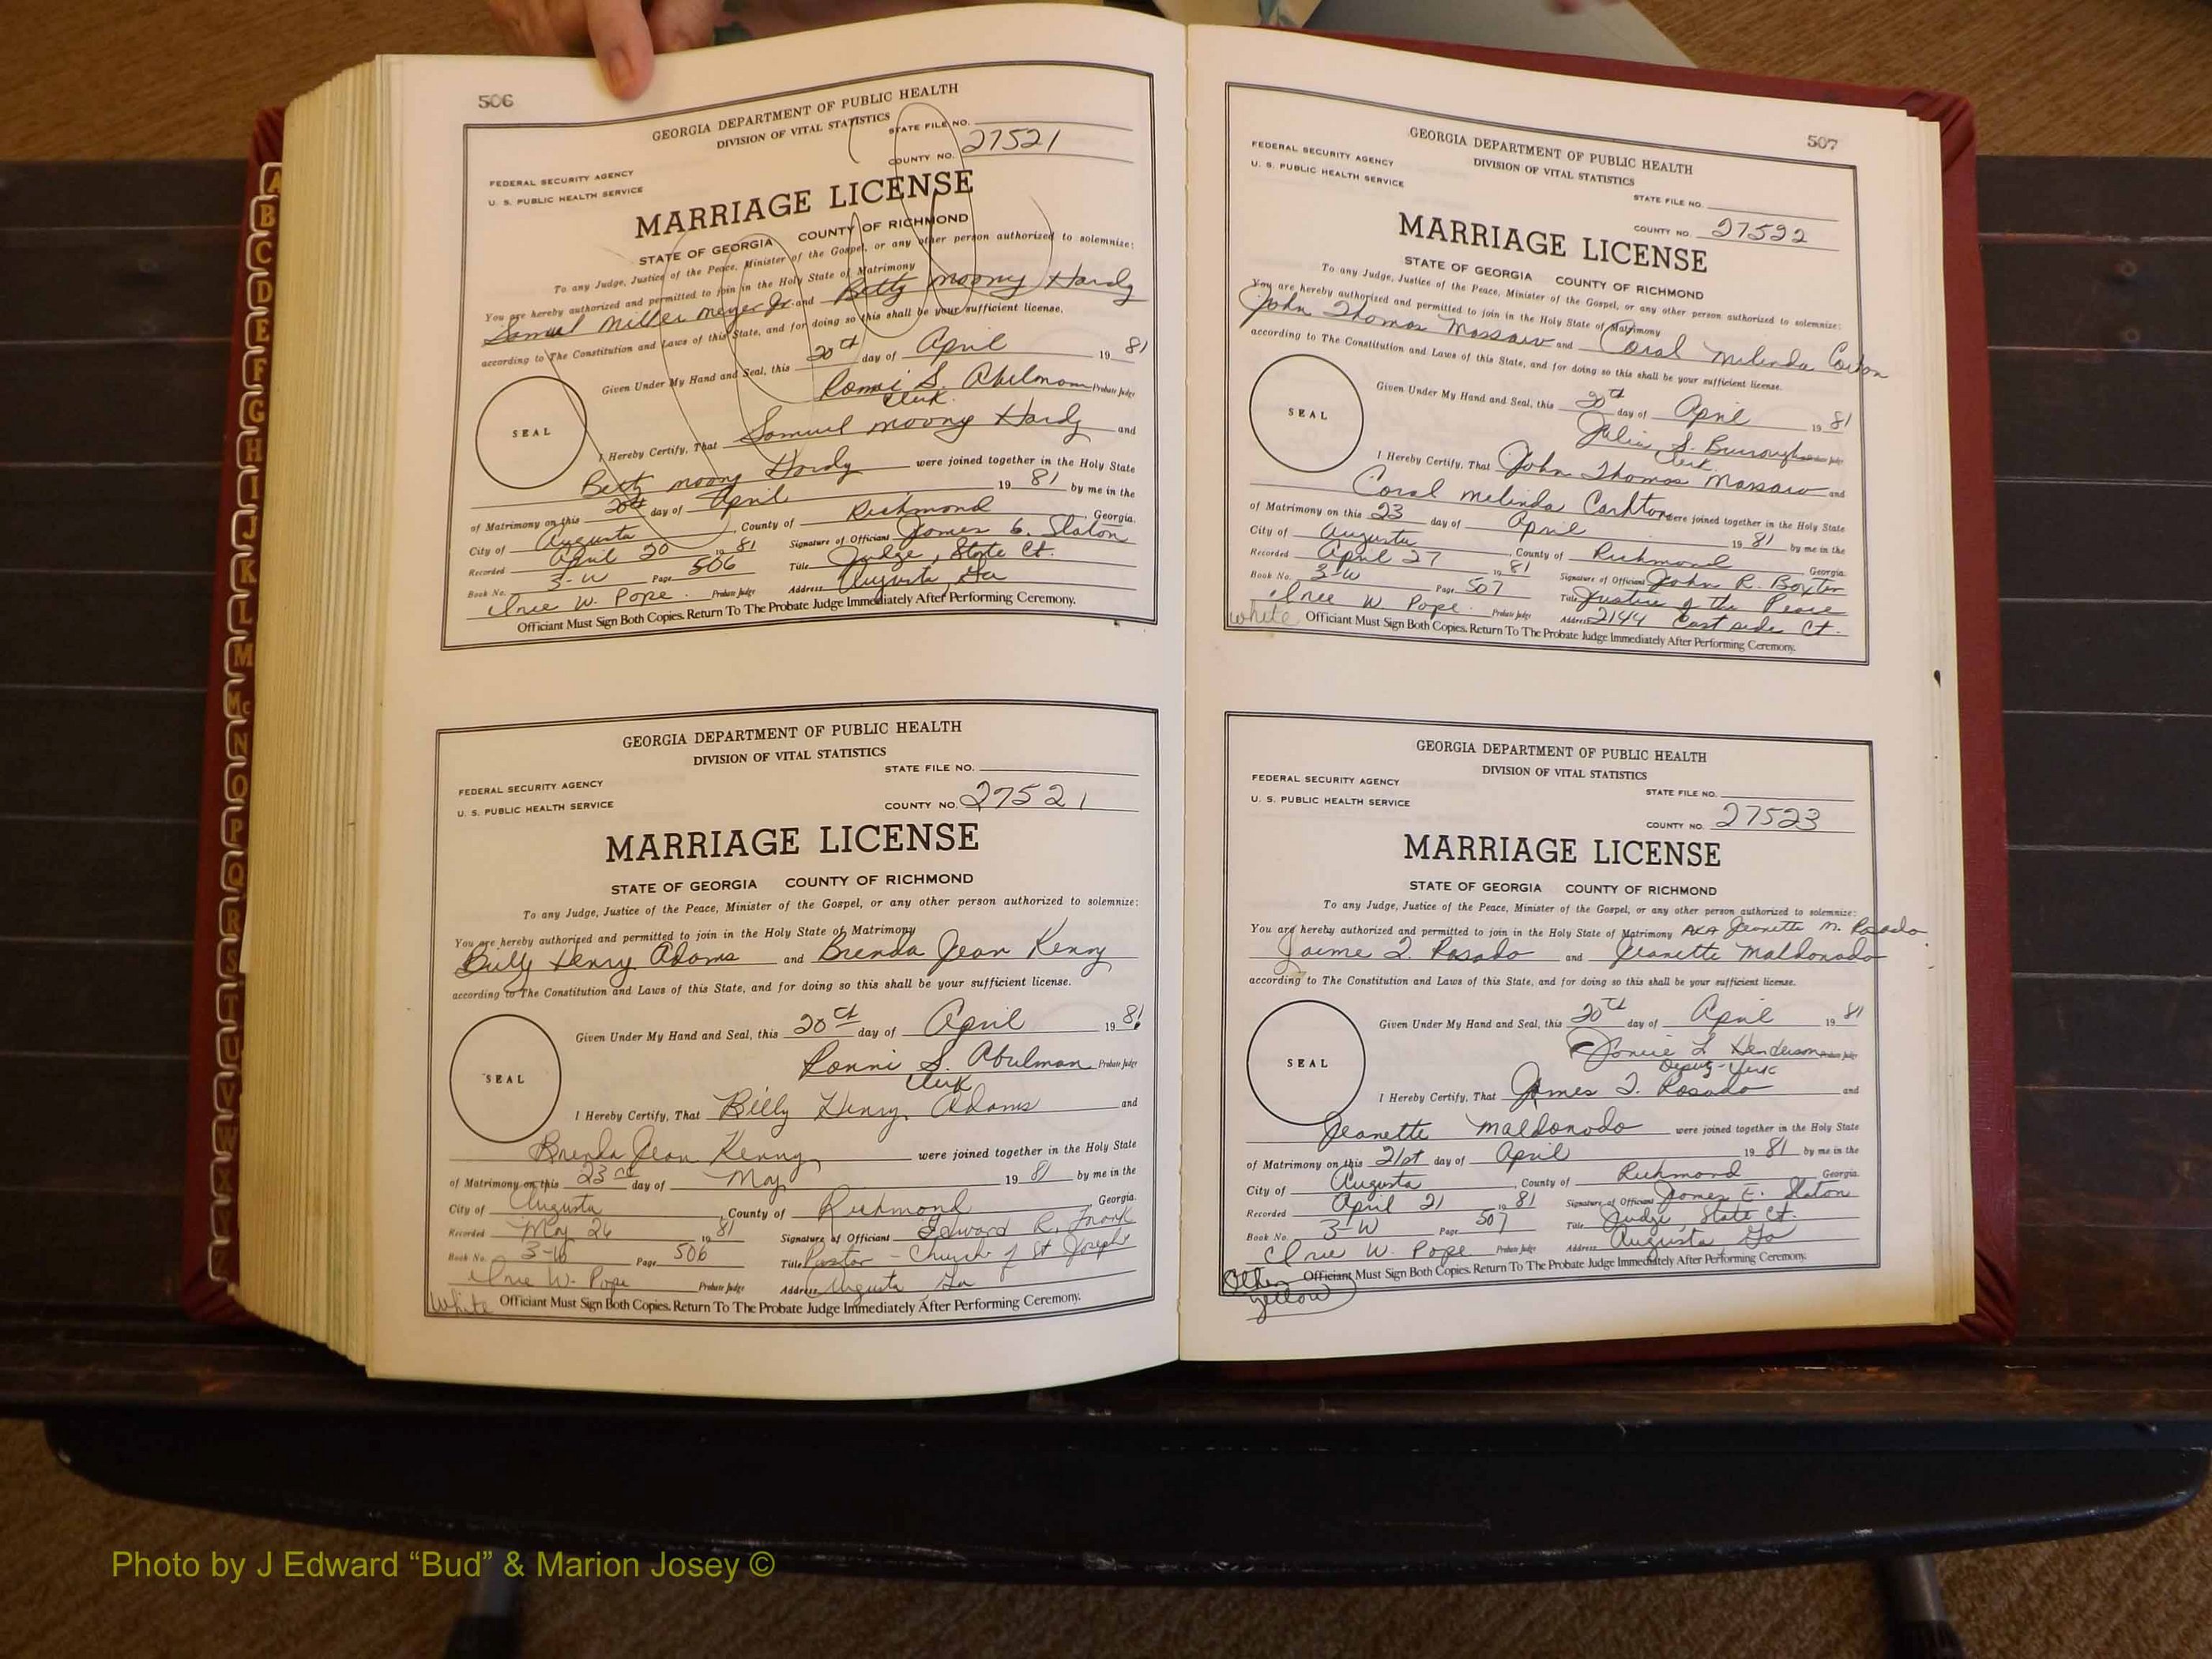 506
GEORGIA DEPARTMENT OF PUBLIC HEALTH
DIVISION OF VITAL STATISTICS
STATE FILE NO.
COUNTY NO. 27521
FEDERAL SECURITY AGENCY
U. S. PUBLIC HEALTH SERVICE
MARRIAGE LICENSE
STATE OF GEORGIA COUNTY OF RICHMOND
To any Judge, Justice of the Peace, Minister of the Gospel, or any other person authorized to solemnize:
You are hereby authorized and permitted to join in the Holy State of Matrimony
Samuel Miller Meyer Jr. and Betty Moony Hardy
according to The Constitution and Laws of this State, and for doing so this shall be your sufficient license.
Given Under My Hand and Seal, this 20th day of April 19 81
Ronni S. Abelman Probate Judge
Clerk
SEAL
I Hereby Certify, That Samuel Moony Hardy and
Betty Moony Hardy were joined together in the Holy State
of Matrimony on this 20th day of April 19 81 by me in the
City of Augusta, County of Richmond, Georgia.
Recorded April 20 19 81 Signature of Officiant James E. Slaton
Book No. 3-W Page 506 Title Judge, State Ct.
Inee W. Pope Probate Judge Address Augusta, Ga
Officiant Must Sign Both Copies. Return To The Probate Judge Immediately After Performing Ceremony.
GEORGIA DEPARTMENT OF PUBLIC HEALTH
DIVISION OF VITAL STATISTICS
STATE FILE NO.
FEDERAL SECURITY AGENCY
U. S. PUBLIC HEALTH SERVICE
COUNTY NO. 27521
MARRIAGE LICENSE
STATE OF GEORGIA COUNTY OF RICHMOND
To any Judge, Justice of the Peace, Minister of the Gospel, or any other person authorized to solemnize:
You are hereby authorized and permitted to join in the Holy State of Matrimony
Billy Henry Adams and Brenda Jean Kenny
according to The Constitution and Laws of this State, and for doing so this shall be your sufficient license.
Given Under My Hand and Seal, this 20th day of April 19 81
Ronni S. Abelman Probate Judge
Clerk
SEAL
I Hereby Certify, That Billy Henry Adams and
Brenda Jean Kenny were joined together in the Holy State
of Matrimony on this 23rd day of May 19 81 by me in the
City of Augusta, County of Richmond, Georgia.
Recorded May 26 19 81 Signature of Officiant Edward R. Frank
Book No. 3-W Page 506 Title Pastor - Church of St Joseph
Inee W. Pope Probate Judge Address Augusta, Ga
White Officiant Must Sign Both Copies. Return To The Probate Judge Immediately After Performing Ceremony.
507
GEORGIA DEPARTMENT OF PUBLIC HEALTH
DIVISION OF VITAL STATISTICS
FEDERAL SECURITY AGENCY
U. S. PUBLIC HEALTH SERVICE
STATE FILE NO.
COUNTY NO. 27522
MARRIAGE LICENSE
STATE OF GEORGIA COUNTY OF RICHMOND
To any Judge, Justice of the Peace, Minister of the Gospel, or any other person authorized to solemnize:
You are hereby authorized and permitted to join in the Holy State of Matrimony
John Thomas Massaro and Coral Melinda
according to The Constitution and Laws of this State, and for doing so this shall be your sufficient license.
Given Under My Hand and Seal, this 20th day of April 19 81
Julia S. Burroughs Probate Judge
Clerk
SEAL
I Hereby Certify, That John Thomas Massaro and
Coral Melinda Carlton were joined together in the Holy State
of Matrimony on this 23 day of April 19 81 by me in the
City of Augusta, County of Richmond Georgia.
Recorded April 27 19 81 Signature of Officiant John R. Baxter
Book No. 3-W Page 507 Title Justice of the Peace
Inee W. Pope Probate Judge Address 2144 East side Ct.
White Officiant Must Sign Both Copies. Return To The Probate Judge Immediately After Performing Ceremony.
GEORGIA DEPARTMENT OF PUBLIC HEALTH
DIVISION OF VITAL STATISTICS
FEDERAL SECURITY AGENCY
U. S. PUBLIC HEALTH SERVICE
STATE FILE NO.
COUNTY NO. 27523
MARRIAGE LICENSE
STATE OF GEORGIA COUNTY OF RICHMOND
To any Judge, Justice of the Peace, Minister of the Gospel, or any other person authorized to solemnize:
You are hereby authorized and permitted to join in the Holy State of Matrimony AKA Jeanette M. Rosado
Jaime I. Rosado and Jeanette Maldonado
according to The Constitution and Laws of this State, and for doing so this shall be your sufficient license.
Given Under My Hand and Seal, this 20th day of April 19 81
L Henderson Probate Judge
Deputy-Clerk
SEAL
I Hereby Certify, That James I. Rosado and
Jeanette Maldonado were joined together in the Holy State
of Matrimony on this 21st day of April 19 81 by me in the
City of Augusta, County of Richmond Georgia.
Recorded April 21 19 81 Signature of Officiant James E. Slaton
Book No. 3-W Page 507 Title Judge, State Ct.
Inee W. Pope Probate Judge Address Augusta Ga
Officiant Must Sign Both Copies. Return To The Probate Judge Immediately After Performing Ceremony.
Other
yellow
A
B
C
D
E
F
G
H
I
J
K
L
M
Mc
N
O
P
Q
R
S
T
U
V
W
X
Y
Photo by J Edward “Bud” & Marion Josey ©